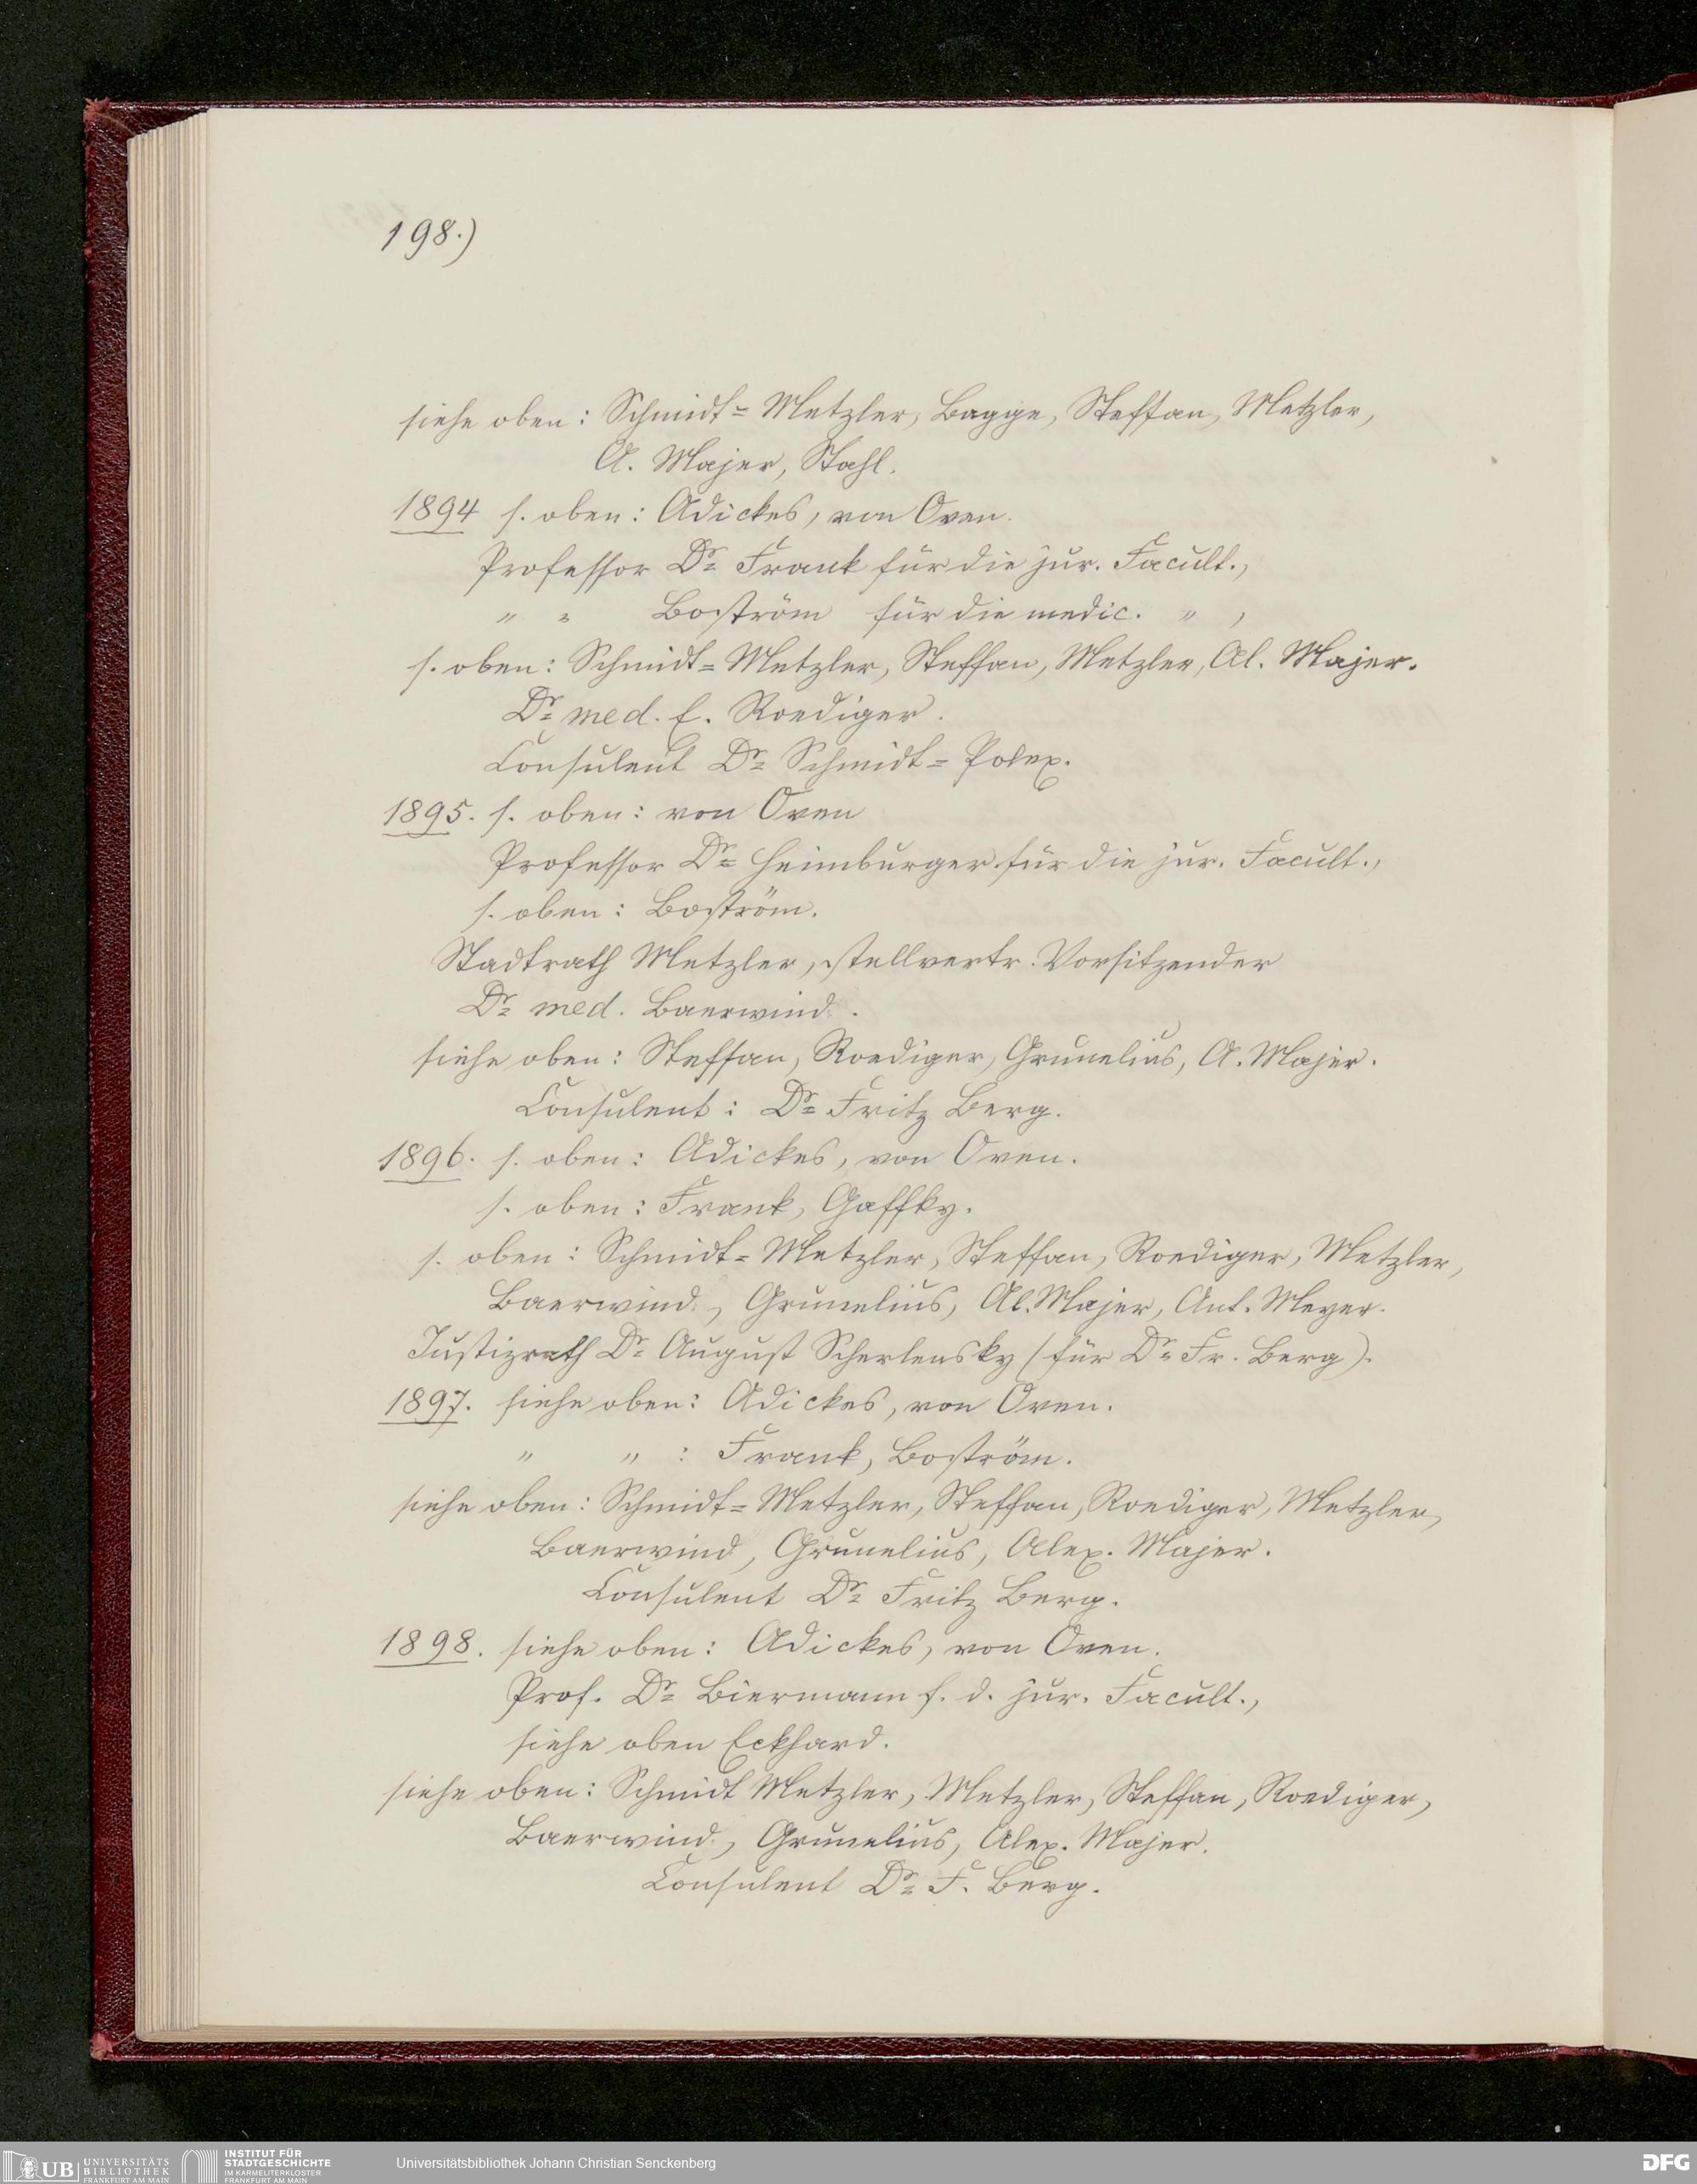 198.)
siehe oben: Schmidt=Metzler, Bagge, Steffan, Metzler,
A. Majer, Stahl.
1894 s. oben: Adickes, von Oven.
Professor Dr. Frank für die jur. Facult.,
" " Boström für die medic. " ,
s. oben: Schmidt=Metzler, Steffan, Metzler, Al. Majer.
Dr. med. E. Roediger.
Consulent Dr. Schmidt=Polex.
1895. s. oben: von Oven
Professor Dr. Heimburger für die jur. Facult.,
s. oben: Boström.
Stadtrath Metzler, stellvertr. Vorsitzender
Dr. med. Baerwind.
siehe oben: Steffan, Roediger, Grunelius, A. Majer.
Consulent: Dr. Fritz Berg.
1896. s. oben: Adickes, von Oven.
s. oben: Frank, Gaffky.
s. oben: Schmidt=Metzler, Steffan, Roediger, Metzler,
Baerwind, Grunelius, Al. Majer, Ant. Meyer.
Justizrath Dr. August Scherlensky (für Dr. Fr. Berg).
1897. siehe oben: Adickes, von Oven.
" " : Frank, Boström.
siehe oben: Schmidt=Metzler, Steffan, Roediger, Metzler,
Baerwind, Grunelius, Alex. Majer.
Consulent Dr. Fritz Berg.
1898. siehe oben: Adickes, von Oven.
Prof. Dr. Biermann f. d. jur. Facult.,
siehe oben Eckhard.
siehe oben: Schmidt Metzler, Metzler, Steffan, Roediger,
Baerwind, Grunelius, Alex. Majer.
Consulent Dr. F. Berg.
UB UNIVERSITÄTS
BIBLIOTHEK
FRANKFURT AM MAIN
INSTITUT FÜR
STADTGESCHICHTE
IM KARMELITERKLOSTER
FRANKFURT AM MAIN
Universitätsbibliothek Johann Christian Senckenberg
DFG